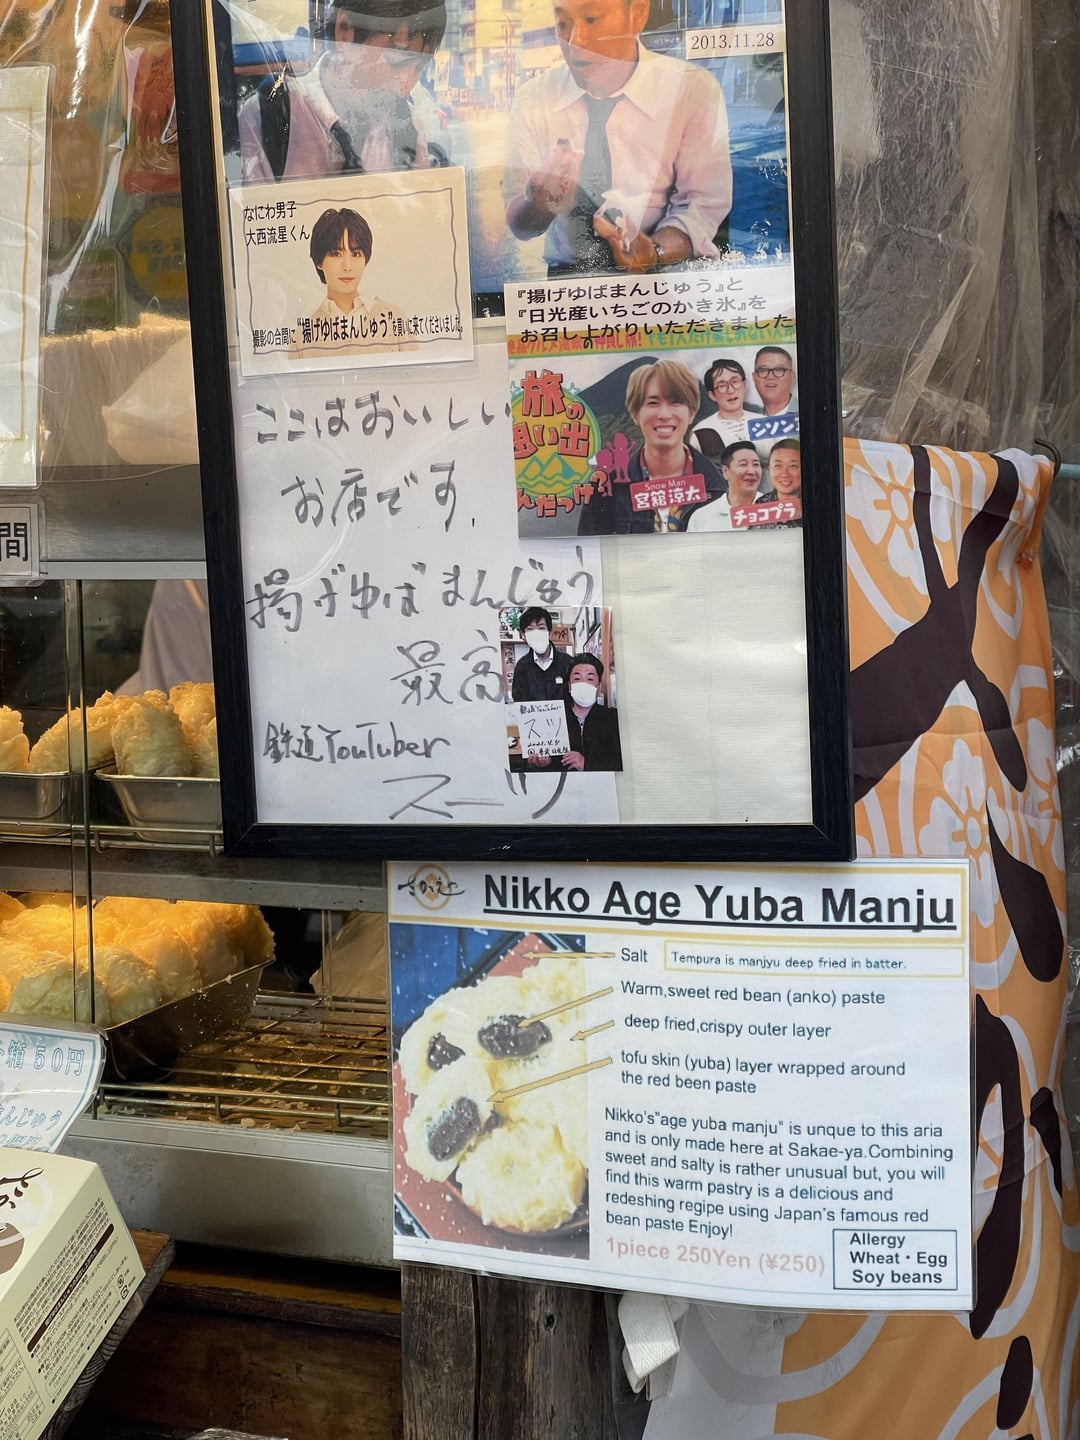 2013.11.28
なにわ男子
大西流星くん
撮影の合間に"揚げゆばまんじゅう"を買いに来てくださいました。
『揚げゆばまんじゅう』と
『日光産いちごのかき氷』を
お召し上がりいただきました
旅の
思い出
なんだっけ?
シソン
Snow Man
宮舘涼太
チョコプラ
ここはおいしい
お店です。
揚げゆばまんじゅう
最高
鉄道YouTuber
スーツ
鉄道YouTuber
スーツ
間
箱50円
まんじゅう
さかえや
Nikko Age Yuba Manju
Salt
Tempura is manjyu deep fried in batter.
Warm,sweet red bean (anko) paste
deep fried,crispy outer layer
tofu skin (yuba) layer wrapped around
the red been paste
Nikko's"age yuba manju" is unque to this aria
and is only made here at Sakae-ya.Combining
sweet and salty is rather unusual but, you will
find this warm pastry is a delicious and
redeshing regipe using Japan's famous red
bean paste Enjoy!
1piece 250Yen (¥250)
Allergy
Wheat・Egg
Soy beans